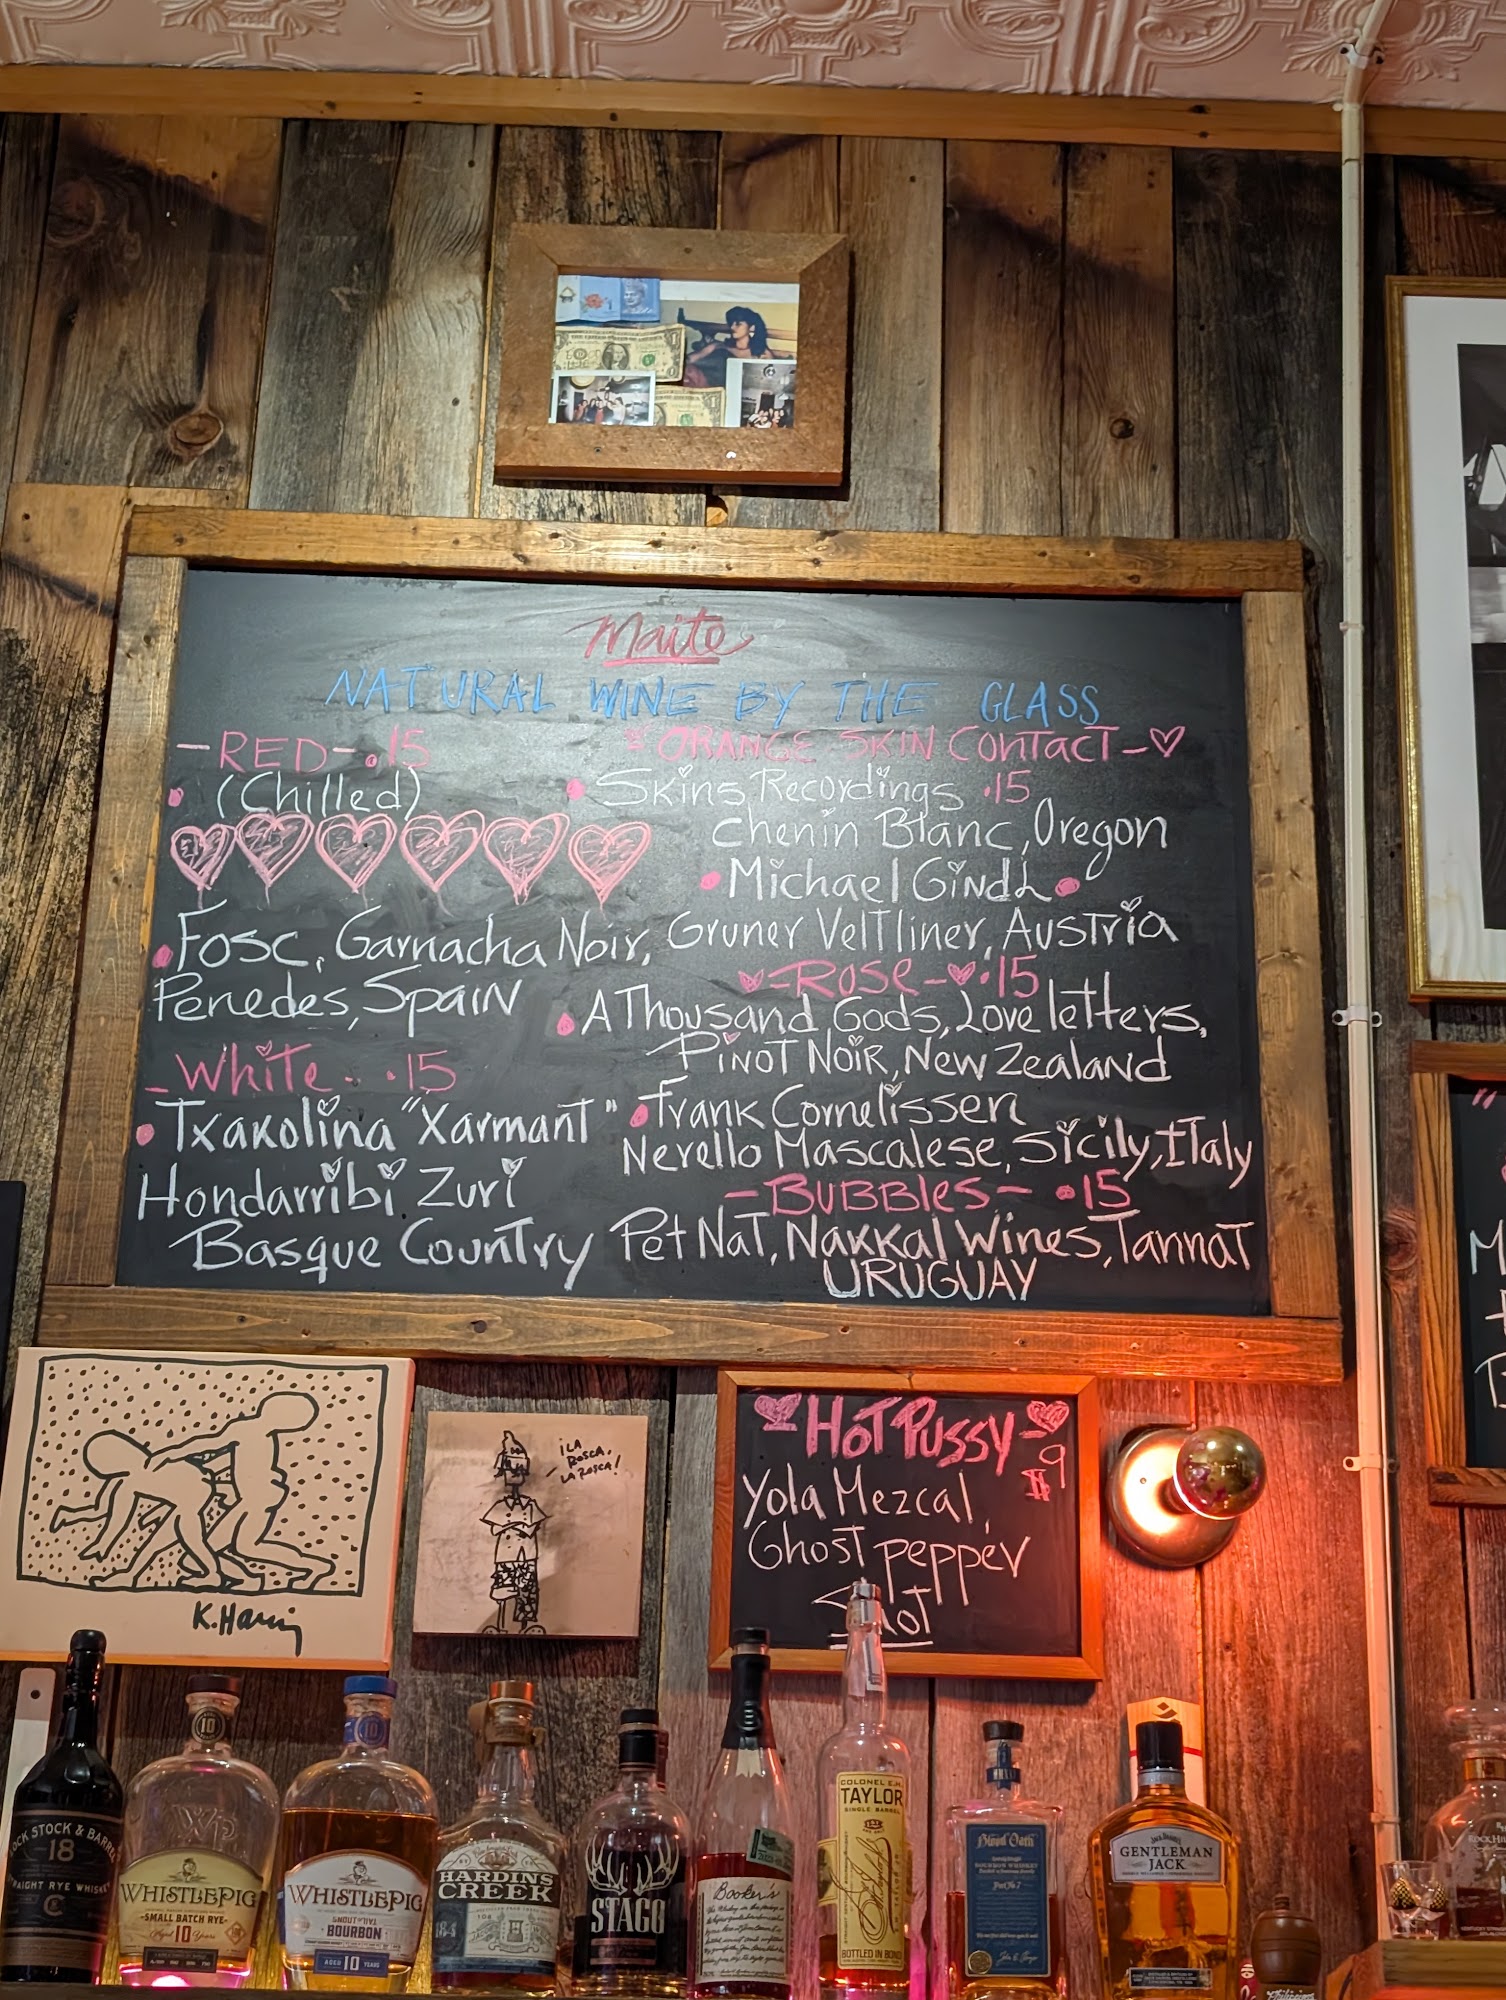 Maite
NATURAL WINE BY THE GLASS
- RED - .15
(Chilled)
Fosc, Garnacha Noir,
Penedes, Spain
- White - .15
Txakolina "Xarmant"
Hondarribi Zuri
Basque Country
ORANGE SKIN Contact -
Skins Recordings .15
Chenin Blanc, Oregon
Michael Gindl
Gruner Veltliner, Austria
- Rose - .15
A Thousand Gods, Love letters,
Pinot Noir, New Zealand
Frank Cornelissen
Nerello Mascalese, Sicily, Italy
- BUBBLES - .15
Pet Nat, Nakkal Wines, Tannat
URUGUAY
K. Haring
¡LA
ROSCA,
LA ROSCA!
HOT PUSSY
$9
Yola Mezcal,
Ghost pepper
Shot
OCK STOCK & BARREL
18
STRAIGHT RYE WHISKEY
10
WHISTLEPIG
SMALL BATCH RYE
Aged 10 Years
10
WHISTLEPIG
SNOUT TO TAIL
BOURBON
AGED 10 YEARS
HARDIN'S
CREEK
STAGG
Booker's
COLONEL E.H.
TAYLOR
SINGLE BARREL
BOTTLED IN BOND
Blood Oath
BOURBON WHISKEY
Pact No. 7
JACK DANIEL'S
GENTLEMAN
JACK
ROCK HILL